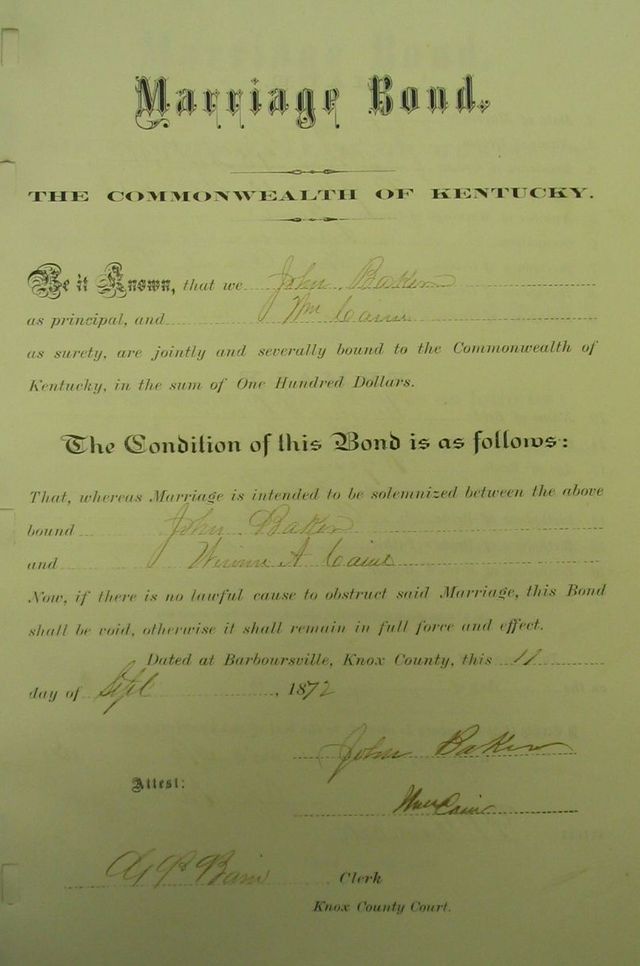 Marriage Bond.
THE COMMONWEALTH OF KENTUCKY.
Be it Known, that we John Baker
as principal, and Wm Caine
as surety, are jointly and severally bound to the Commonwealth of
Kentucky, in the sum of One Hundred Dollars.
The Condition of this Bond is as follows:
That, whereas Marriage is intended to be solemnized between the above
bound John Baker
and A Caine
Now, if there is no lawful cause to obstruct said Marriage, this Bond
shall be void, otherwise it shall remain in full force and effect.
Dated at Barboursville, Knox County, this 11
day of Sept, 1872
John Baker
Attest:
Caine
Clerk
Knox County Court.